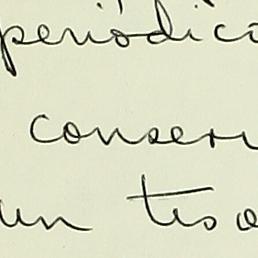 periódico
conser
un teso